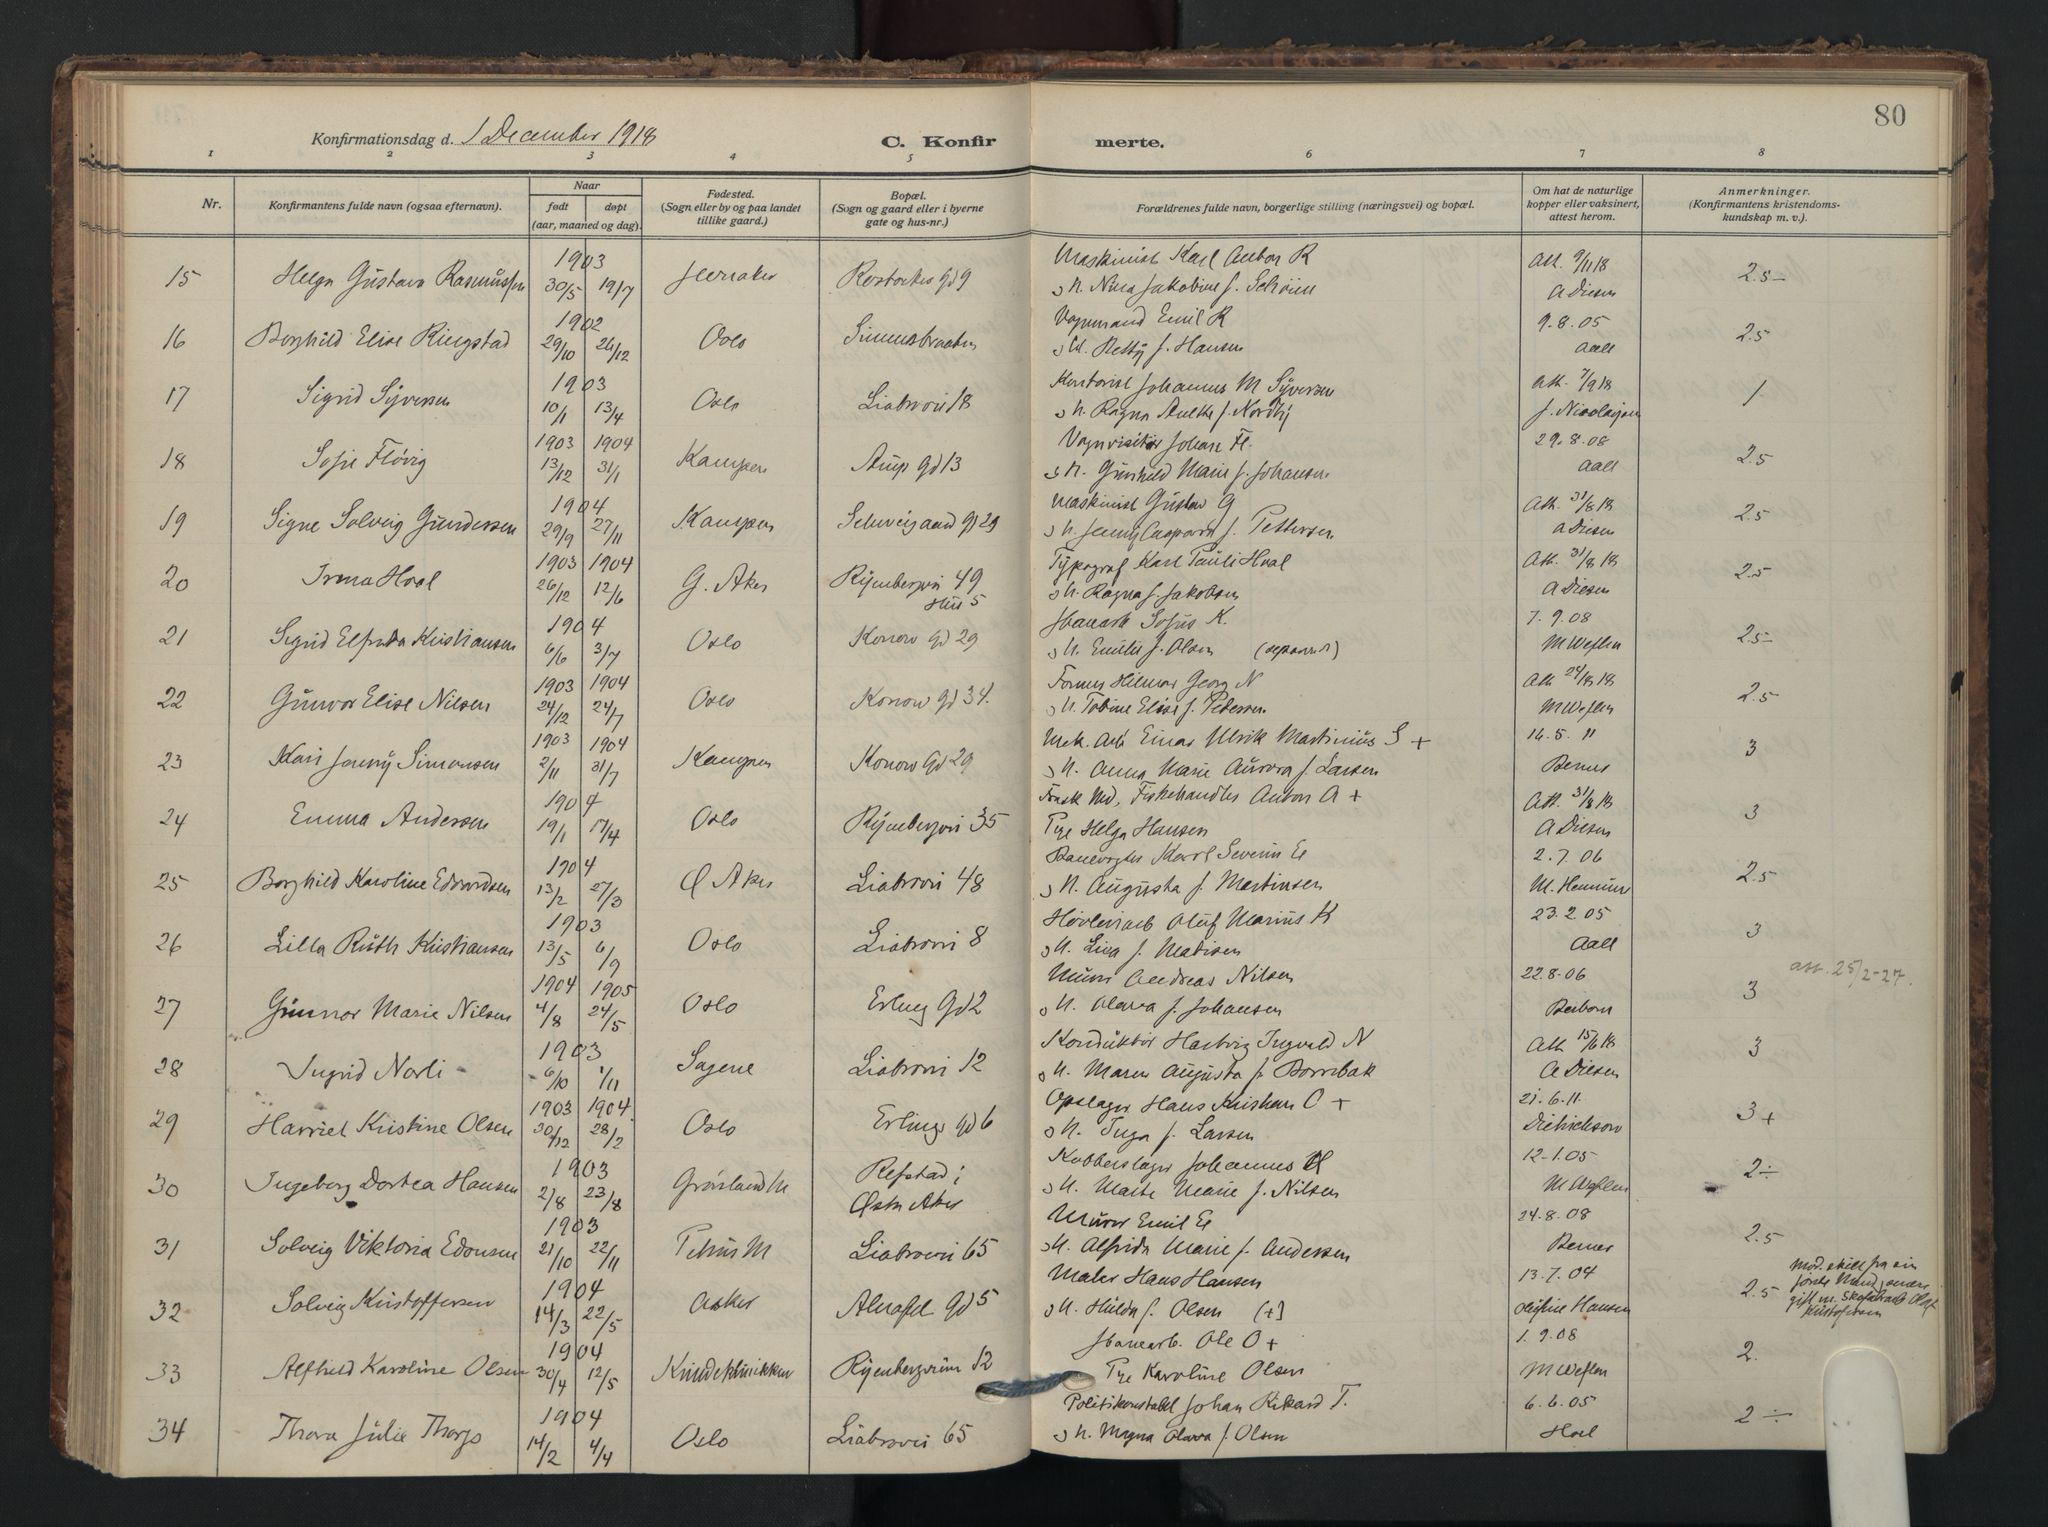 80
Konfirmationsdag d. 1 December 1918
C. Konfir
merte.
1 2 3 4 5 6 7 8
Nr.
Konfirmantens fulde navn (ogsaa efternavn).
Naar
født døpt
(aar, maaned og dag).
Fødested.
(Sogn eller by og paa landet
tillike gaard.)
Bopæl.
(Sogn og gaard eller i byerne
gate og hus-nr.)
Forældrenes fulde navn, borgerlige stilling (næringsvei) og bopæl.
Om hat de naturlige
kopper eller vaksinert,
attest herom.
Anmerkninger.
(Konfirmantens kristendoms-
kundskap m. v.).
1903 Maskinist Karl Anton R Att. 9/11 18
15 Helga Gustava Rasmussen 30/5 19/7 gd 9 2.5-
H. Nina Jakobine f. A Diesen
1902 Vognmand Emil R 9.8.05
16 Borghild Elise Ringstad 29/10 26/12 Oslo 2.5
Betty f. Hansen Aall
1903 Kontorist Johannes M Syversen Att. 7/9 18
17 Sigrid Syversen 10/1 13/4 Oslo Liabrovn 18 1
H. Ragna f. Nordby J. Nicolaysen
1903 1904 Vognvisitør Johan Fl. 29.8.08
18 Sofie Fløvig 13/12 31/1 Kampen gd 13 2.5
H. Gunhild Marie f. Johansen Aall
1904 Maskinist Gustav G Att. 31/8 18
19 Signe Solveig Gundersen 29/9 27/11 Kampen Schweigaard gd 29 2.5
H. Jenny f. Pettersen A Diesen
1903 1904 Typograf Karl Pauli Hval Att. 31/8 18
20 Irma Hval 26/12 12/6 G. Aker Ryenbergvn 49 2.5
Hus 5
H. Ragna f. Jakobsen A Diesen
1904 Sofus K. 7.9.08
21 Sigrid Elfrida Kristiansen 6/6 3/7 Oslo Konow gd 29 2.5-
H. Emilie f. Olsen (separert) M Weflen
1903 1904 Former Hilmar Georg N Att 24/8 18
22 Gunvor Elise Nilsen 24/12 24/7 Oslo Konow gd 34. 2.5
H. Tobine Elise f. Petersen M Weflen
1903 1904 Mek. Arb Einar Ulrik Martinius S + 16.5.11
23 Kari Jenny Simonsen 2/11 31/7 Kampen Konow gd 29 3
H. Anna Marie Aurora f. Larsen Berner
1904 Fiskehandler Anton A + Att. 31/8 18
24 Emma Andersen 19/1 17/4 Oslo Ryenbergvn 35 3
Pge Helga Hansen A Diesen
1904 Banevogter Karl Severin E 2.7.06
25 Borghild Karoline Edvardsen 13/2 27/3 Ø Aker Liabrovn 48 2.5
H. Augusta f. Martinsen
1903 Høvleriarb Oluf Marius K 23.2.05
26 Lilla Ruth Kristiansen 13/5 6/9 Oslo Liabrovn 8 3
H. Lina f. Madisen Aall
1904 1905 Murer Andreas Nilsen 22.8.06 att. 25/2-27.
27 Gunnor Marie Nilsen 4/8 24/5 Oslo Erling gd 2 3
H. Olava f. Johansen
1903 Konduktør Hartvig Ingvald N Att 15/6 18
28 Ingrid Norli 6/10 1/11 Sagene Liabrovn 12 3
H. Maren Augusta f. Borrebæk A Diesen
1903 1904 Opslager Hans Kristian O + 21.6.11
29 Harriet Kristine Olsen 30/12 28/2 Oslo Erlings gd 6 3 +
H. Inga f. Larsen Dietrichson
1903 Kobberslager Johannes H 12-1.05
30 Ingeborg Dortea Hansen 2/8 23/8 Grønland M Refstad i 2÷
Østre Aker
H. Marte Marie f. Nilsen M Weflen
1903 Murer Emil E 24.8.08
31 Solveig Viktoria Edvinsen 21/10 22/11 Petrus M Liabrovn 65 2.5
H. Alfrida Marie f. Andersen Berner
1904 Maler Hans Hansen 13.7.04
32 Solveig Kristoffersen 14/3 22/5 Asker Alnafet gd 5 2.5
H. Hulda f. Olsen (+) Hansen
Mod. skilt fra sin første Mand,
gift m. Olaf Kristofersen
1904 Ole O + 1.9.08
33 Alfhild Karoline Olsen 30/4 12/5 Kvindeklinikken Ryenbergveien 12 2.
Pge Karoline Olsen M Weflen
1904 Politikonstabel Johan Rikard T. 6.6.05
34 Thora Julie Thorp 14/2 4/4 Oslo Liabrovn 65 2 ÷
H. Magna Olava f. Olsen Hoel